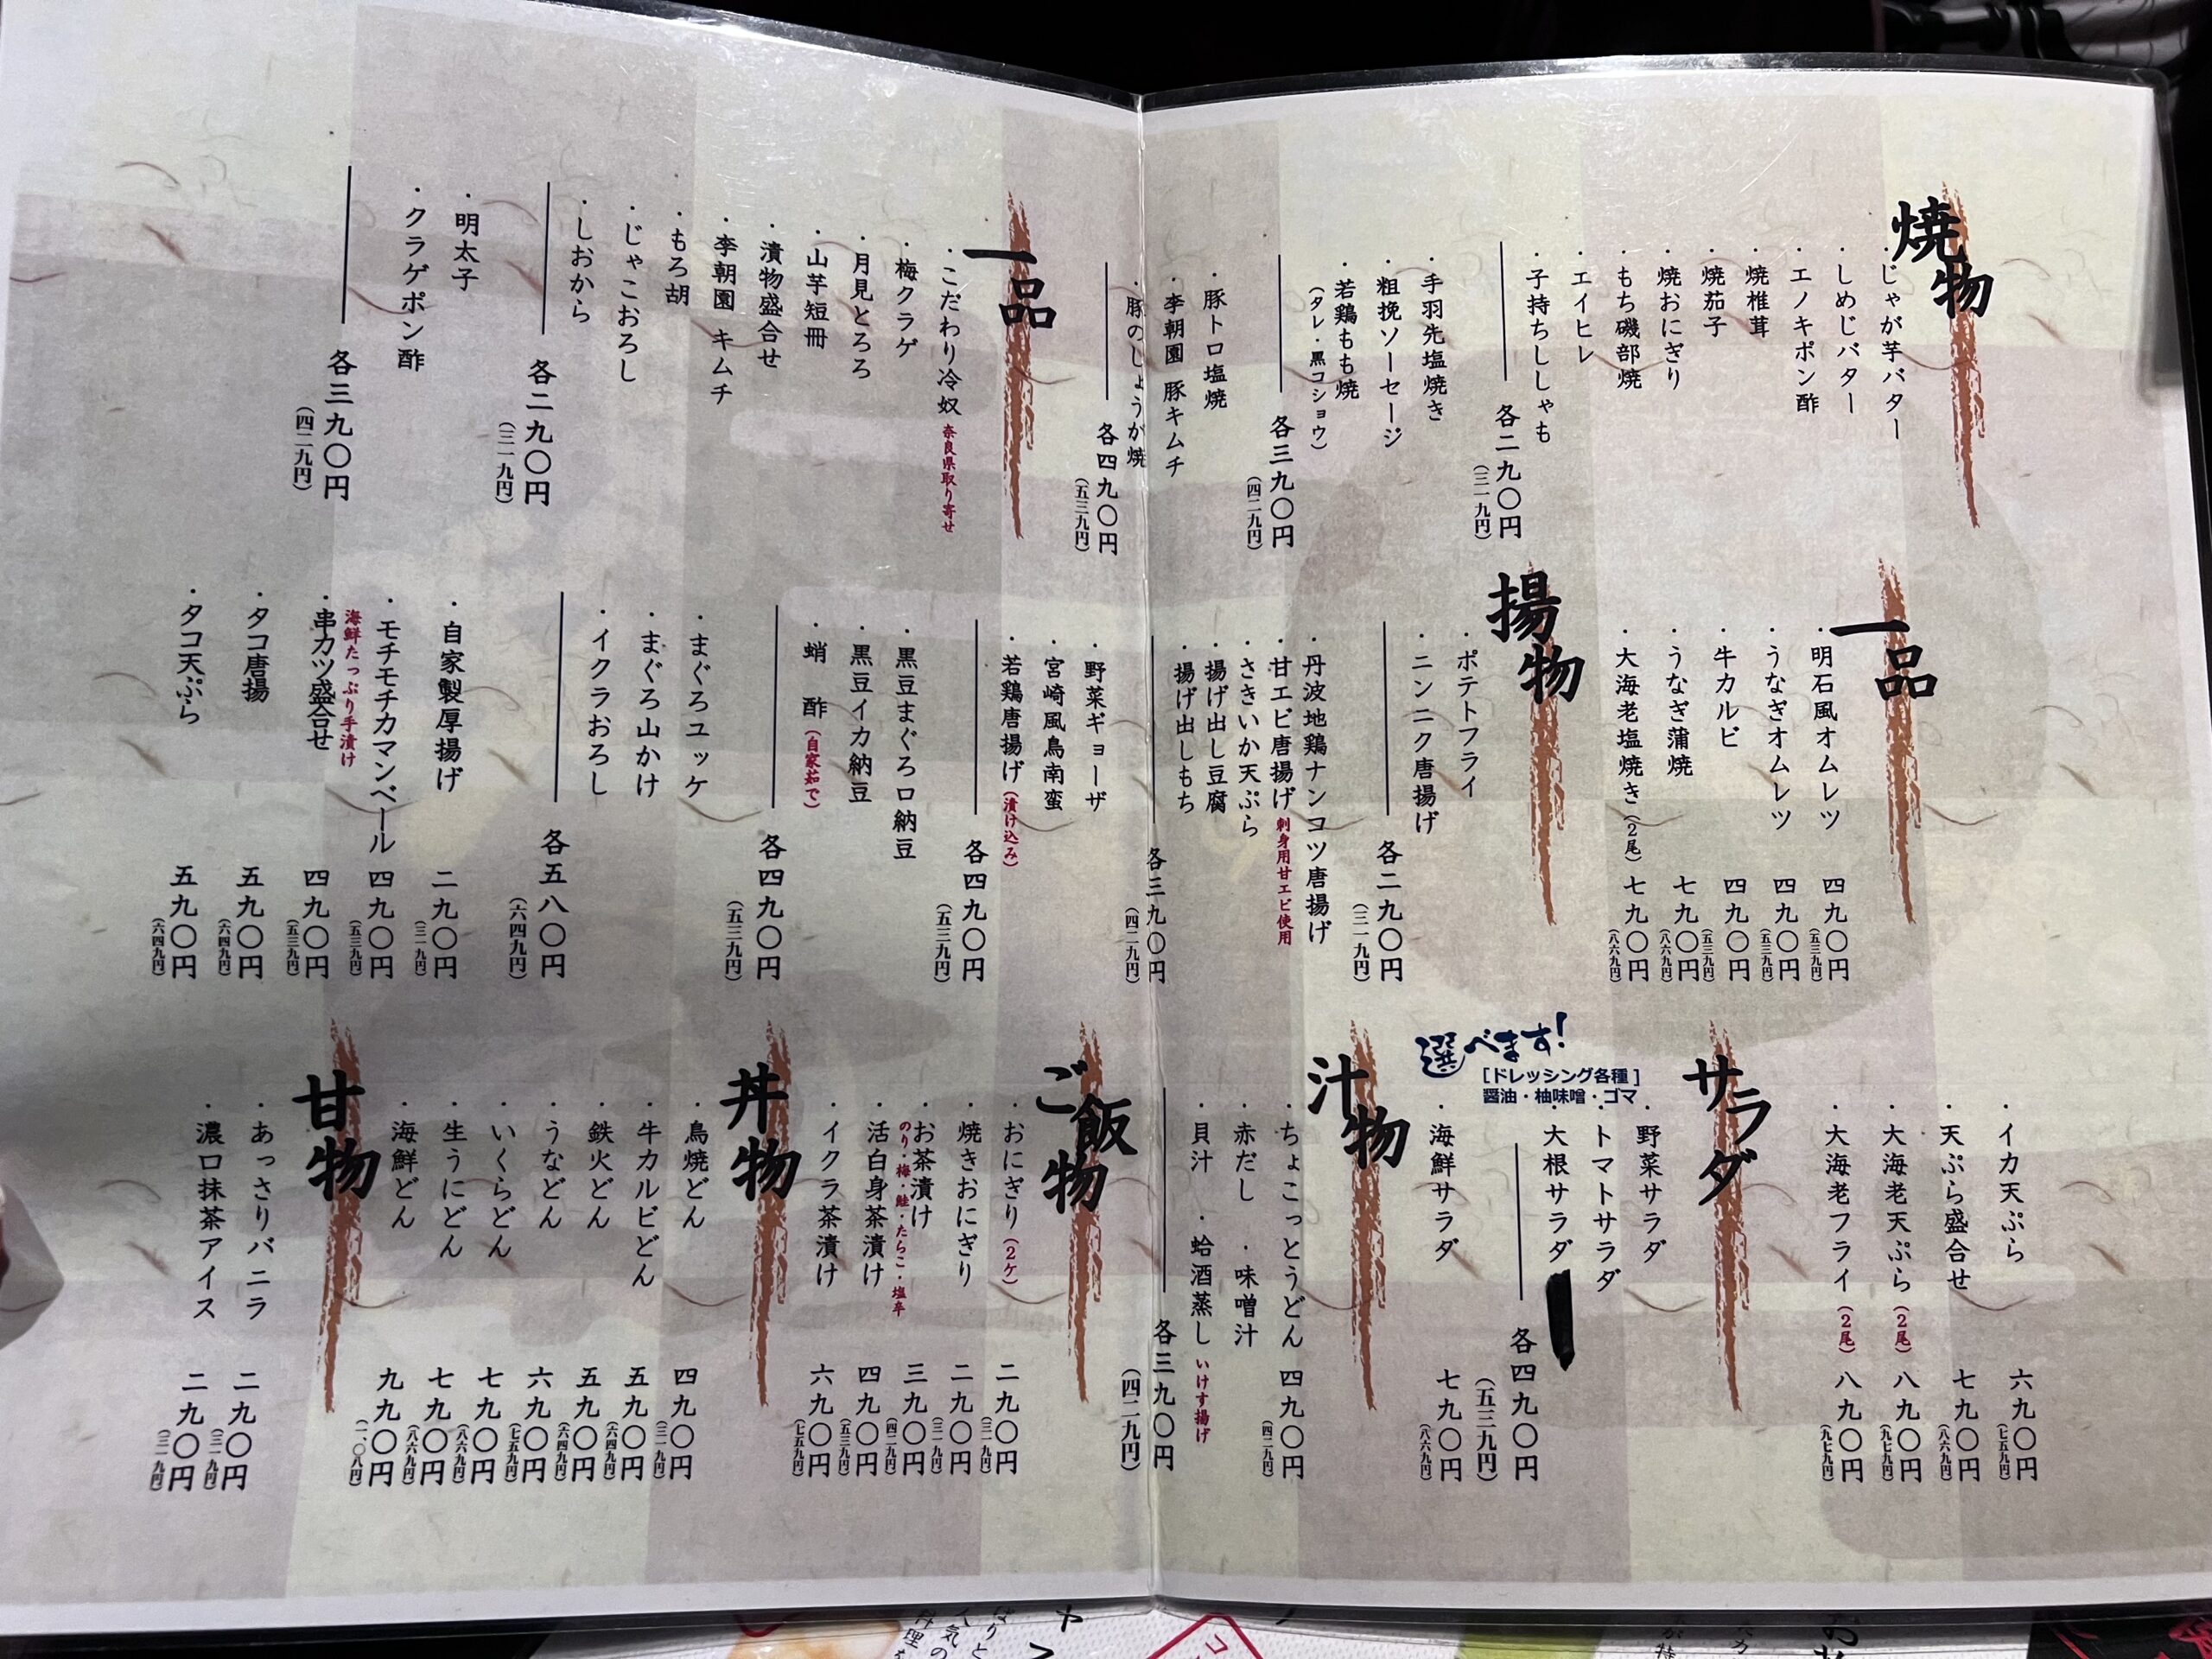 焼物
・じゃが芋バター
・しめじバター
・エノキポン酢
・焼椎茸
・焼茄子
・焼おにぎり
・もち磯部焼
・エイヒレ
・子持ちししゃも
各二九〇円
(三一九円)
・手羽先塩焼き
・粗挽ソーセージ
・若鶏もも焼
(タレ・黒コショウ)
各三九〇円
(四二九円)
・豚トロ塩焼
・李朝園 豚キムチ
・豚のしょうが焼
各四九〇円
(五三九円)
一品
・こだわり冷奴 奈良県取り寄せ
・梅クラゲ
・月見とろろ
・山芋短冊
・漬物盛合せ
・李朝園 キムチ
・もろ胡
・じゃこおろし
・しおから
各二九〇円
(三一九円)
・明太子
・クラゲポン酢
各三九〇円
(四二九円)
一品
・明石風オムレツ 四九〇円(五三九円)
・うなぎオムレツ 四九〇円(五三九円)
・牛カルビ 四九〇円(五三九円)
・うなぎ蒲焼 七九〇円(八六九円)
・大海老塩焼き(2尾) 七九〇円(八六九円)
揚物
・ポテトフライ
・ニンニク唐揚げ
各二九〇円
(三一九円)
・丹波地鶏ナンコツ唐揚げ
・甘エビ唐揚げ 刺身用甘エビ使用
・さきいか天ぷら
・揚げ出し豆腐
・揚げ出しもち
各三九〇円
(四二九円)
・野菜ギョーザ
・宮崎風鳥南蛮
・若鶏唐揚げ(漬け込み)
各四九〇円
(五三九円)
・黒豆まぐろ納豆
・黒豆イカ納豆
・蛸 酢(自家茹で)
各四九〇円
(五三九円)
・まぐろユッケ
・まぐろ山かけ
・イクラおろし
各五八〇円
(六四九円)
・自家製厚揚げ 二九〇円(三一九円)
・モチモチカマンベール 四九〇円(五三九円)
海鮮たっぷり手漬け
・串カツ盛合せ 四九〇円(五三九円)
・タコ唐揚 五九〇円(六四九円)
・タコ天ぷら 五九〇円(六四九円)
・イカ天ぷら 六九〇円(七五九円)
・天ぷら盛合せ 七九〇円(八六九円)
・大海老天ぷら(2尾) 八九〇円(九七九円)
・大海老フライ(2尾) 八九〇円(九七九円)
サラダ
選べます!
[ドレッシング各種]
醤油・柚味噌・ゴマ
・野菜サラダ
・トマトサラダ
・大根サラダ
各四九〇円
(五三九円)
・海鮮サラダ 七九〇円(八六九円)
汁物
・ちょこっとうどん 四九〇円(四二九円)
・赤だし ・味噌汁
・貝汁 ・蛤酒蒸し いけす揚げ
各三九〇円
(四二九円)
ご飯物
・おにぎり(2ケ) 二九〇円(三一九円)
・焼きおにぎり 二九〇円(三一九円)
・お茶漬け 三九〇円(四二九円)
のり・梅・鮭・たらこ・塩辛
・活白身茶漬け 四九〇円(五三九円)
・イクラ茶漬け 六九〇円(七五九円)
丼物
・鳥焼どん 四九〇円(三一九円)
・牛カルビどん 五九〇円(六四九円)
・鉄火どん 五九〇円(六四九円)
・うなどん 六九〇円(七五九円)
・いくらどん 七九〇円(八六九円)
・生うにどん 七九〇円(八六九円)
・海鮮どん 九九〇円(一、〇八円)
甘物
・あっさりバニラ 二九〇円(三一九円)
・濃口抹茶アイス 二九〇円(三一九円)